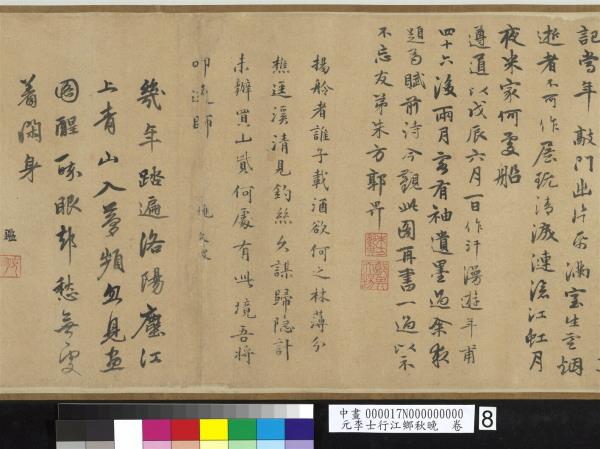 記當年敲門出片帋滿室生雲烟
逝者不可作展玩清淚漣滄江虹月
夜米家何處船
遵道以戊辰六月一日作汗漫遊年甫
四十六後兩月客有袖遺墨過余求
題為賦前詩今觀此圖再書一過以示
不忘友弟朱方郭畀
揚舲者誰子載酒欲何之林薄分
樵逕溪清見釣絲久謀歸隱計
未辦買山貲何處有此境吾將
叩師
幾年踏遍洛陽塵江
上青山入夢頻忽見畫
圖醒醉眼却愁無處
着閑身
中畫 000017N000000000
元李士行江鄉秋晚 卷
8